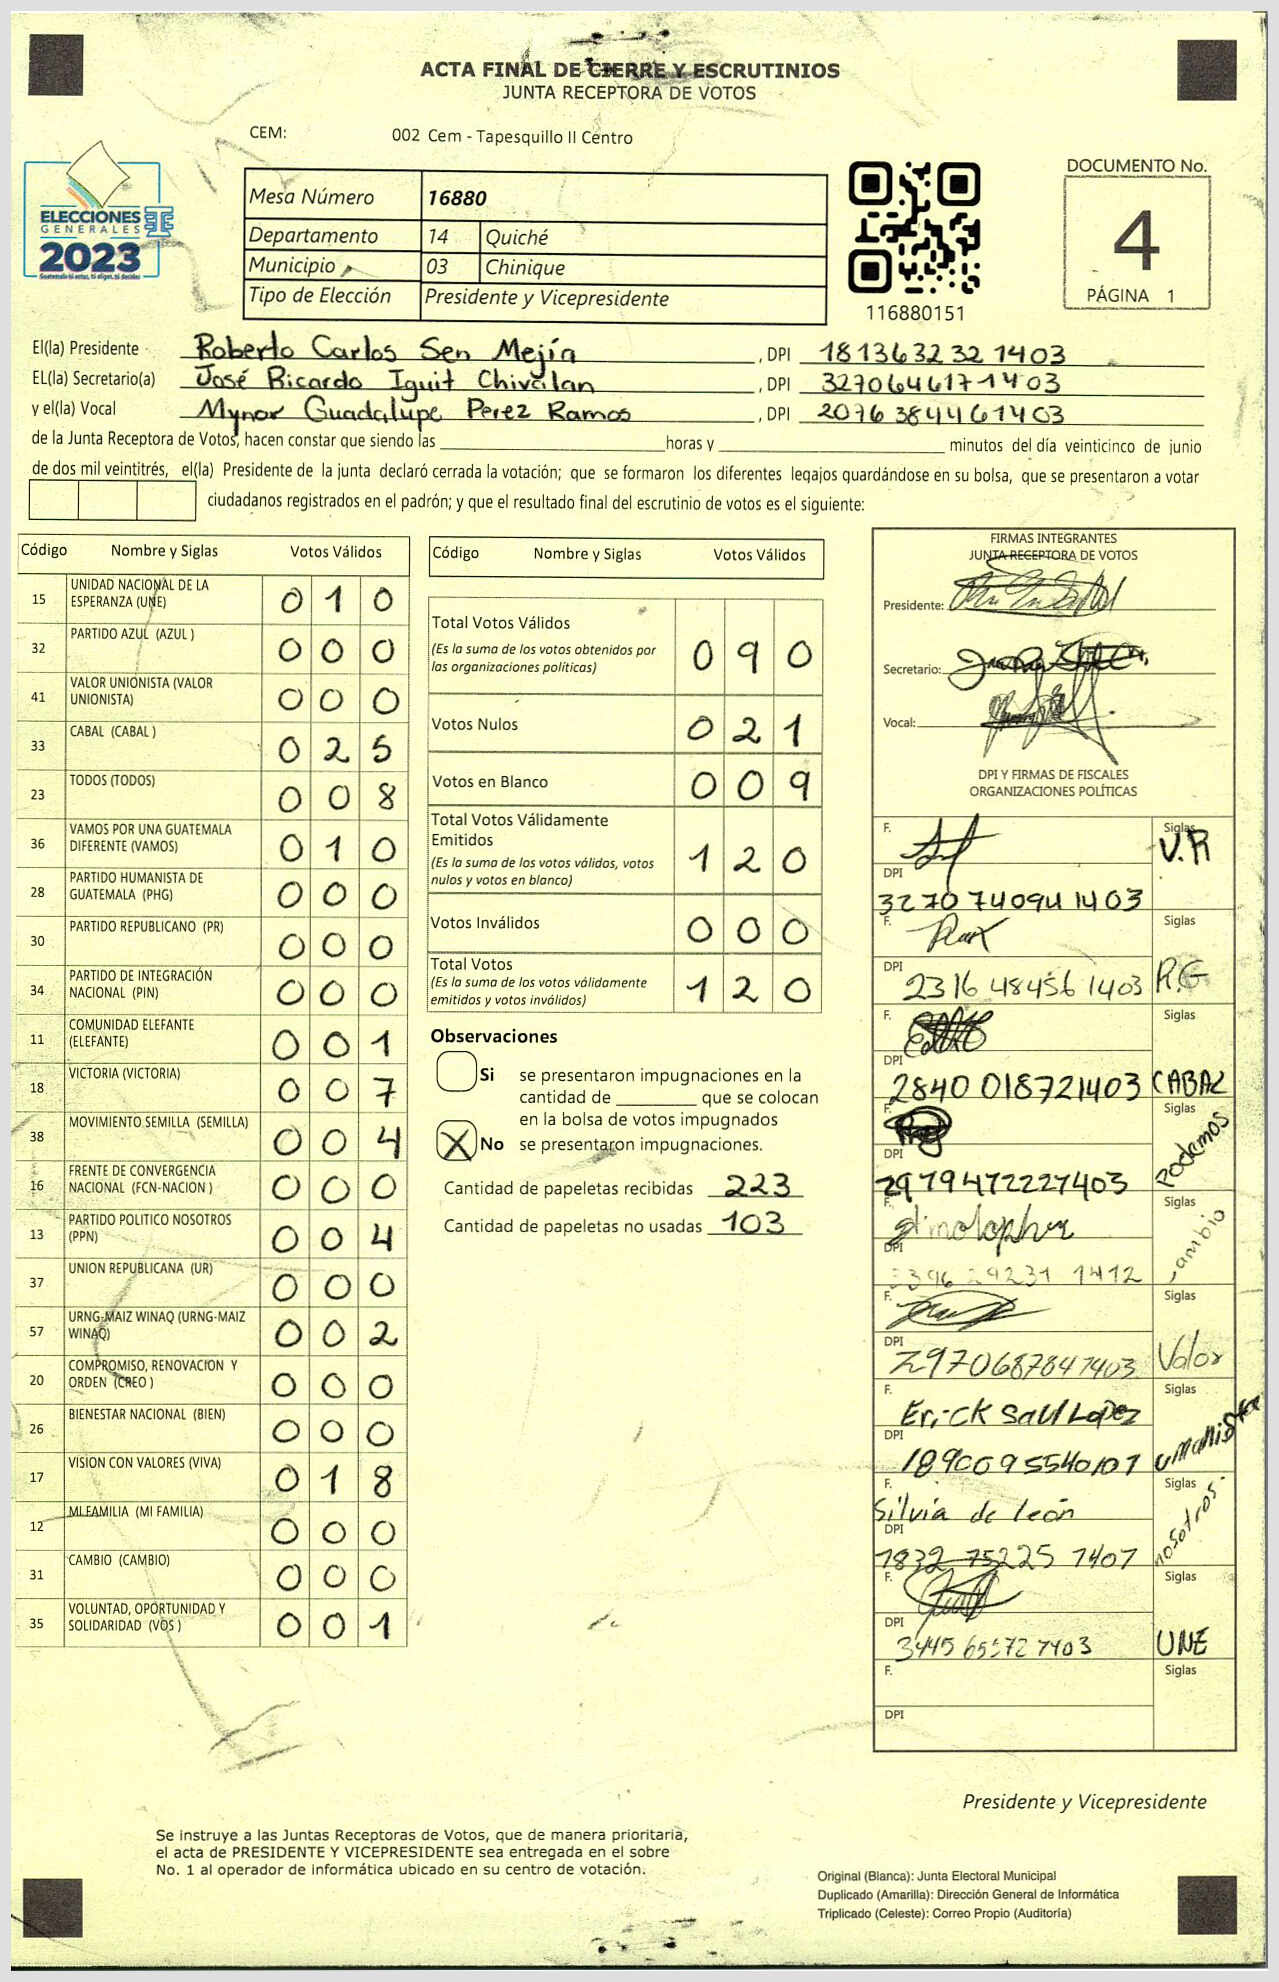 ACTA FINAL DE CIERRE Y ESCRUTINIOS
JUNTA RECEPTORA DE VOTOS
CEM: 002 Cem - Tapesquillo II Centro
ELECCIONES
GENERALES
2023
Mesa Número 16880
Departamento 14 Quiché
Municipio 03 Chinique
Tipo de Elección Presidente y Vicepresidente
116880151
DOCUMENTO No.
4
PÁGINA 1
El(la) Presidente Roberto Carlos Sen Mejía , DPI 1813632321403
EL(la) Secretario(a) José Ricardo Iguit Chivalan , DPI 3270646171403
y el(la) Vocal Mynor Guadalupe Perez Ramos , DPI 2076384461403
de la Junta Receptora de Votos, hacen constar que siendo las horas y minutos del día veinticinco de junio
de dos mil veintitrés, el(la) Presidente de la junta declaró cerrada la votación; que se formaron los diferentes legajos guardándose en su bolsa, que se presentaron a votar
ciudadanos registrados en el padrón; y que el resultado final del escrutinio de votos es el siguiente:
Código Nombre y Siglas Votos Válidos
15 UNIDAD NACIONAL DE LA ESPERANZA (UNE) 0 1 0
32 PARTIDO AZUL (AZUL ) 0 0 0
41 VALOR UNIONISTA (VALOR UNIONISTA) 0 0 0
33 CABAL (CABAL ) 0 2 5
23 TODOS (TODOS) 0 0 8
36 VAMOS POR UNA GUATEMALA DIFERENTE (VAMOS) 0 1 0
28 PARTIDO HUMANISTA DE GUATEMALA (PHG) 0 0 0
30 PARTIDO REPUBLICANO (PR) 0 0 0
34 PARTIDO DE INTEGRACIÓN NACIONAL (PIN) 0 0 0
11 COMUNIDAD ELEFANTE (ELEFANTE) 0 0 1
18 VICTORIA (VICTORIA) 0 0 7
38 MOVIMIENTO SEMILLA (SEMILLA) 0 0 4
16 FRENTE DE CONVERGENCIA NACIONAL (FCN-NACION ) 0 0 0
13 PARTIDO POLITICO NOSOTROS (PPN) 0 0 4
37 UNION REPUBLICANA (UR) 0 0 0
57 URNG-MAIZ WINAQ (URNG-MAIZ WINAQ) 0 0 2
20 COMPROMISO, RENOVACION Y ORDEN (CREO ) 0 0 0
26 BIENESTAR NACIONAL (BIEN) 0 0 0
17 VISION CON VALORES (VIVA) 0 1 8
12 MI FAMILIA (MI FAMILIA) 0 0 0
31 CAMBIO (CAMBIO) 0 0 0
35 VOLUNTAD, OPORTUNIDAD Y SOLIDARIDAD (VOS ) 0 0 1
Código Nombre y Siglas Votos Válidos
Total Votos Válidos 0 9 0
(Es la suma de los votos obtenidos por
las organizaciones políticas)
Votos Nulos 0 2 1
Votos en Blanco 0 0 9
Total Votos Válidamente
Emitidos 1 2 0
(Es la suma de los votos válidos, votos
nulos y votos en blanco)
Votos Inválidos 0 0 0
Total Votos 1 2 0
(Es la suma de los votos válidamente
emitidos y votos inválidos)
Observaciones
Si se presentaron impugnaciones en la
cantidad de que se colocan
en la bolsa de votos impugnados
X No se presentaron impugnaciones.
Cantidad de papeletas recibidas 223
Cantidad de papeletas no usadas 103
FIRMAS INTEGRANTES
JUNTA RECEPTORA DE VOTOS
Presidente:
Secretario:
Vocal:
DPI Y FIRMAS DE FISCALES
ORGANIZACIONES POLÍTICAS
F. Siglas V.R
DPI 3270740941403
F. Siglas R.G
DPI 2316484561403
F. Siglas CABAL
DPI 2840018721403
F. Siglas Podemos
DPI 2979472227403
F. Siglas
DPI
F. Siglas Valor
DPI 2970687847403
F. Erick Saul Lopez Siglas
DPI 1890095540101
F. Silvia de león Siglas nosotros.
DPI 1832752257407
F. Siglas UNE
DPI
F. Siglas
DPI
Presidente y Vicepresidente
Se instruye a las Juntas Receptoras de Votos, que de manera prioritaria,
el acta de PRESIDENTE Y VICEPRESIDENTE sea entregada en el sobre
No. 1 al operador de informática ubicado en su centro de votación.
Original (Blanca): Junta Electoral Municipal
Duplicado (Amarilla): Dirección General de Informática
Triplicado (Celeste): Correo Propio (Auditoría)